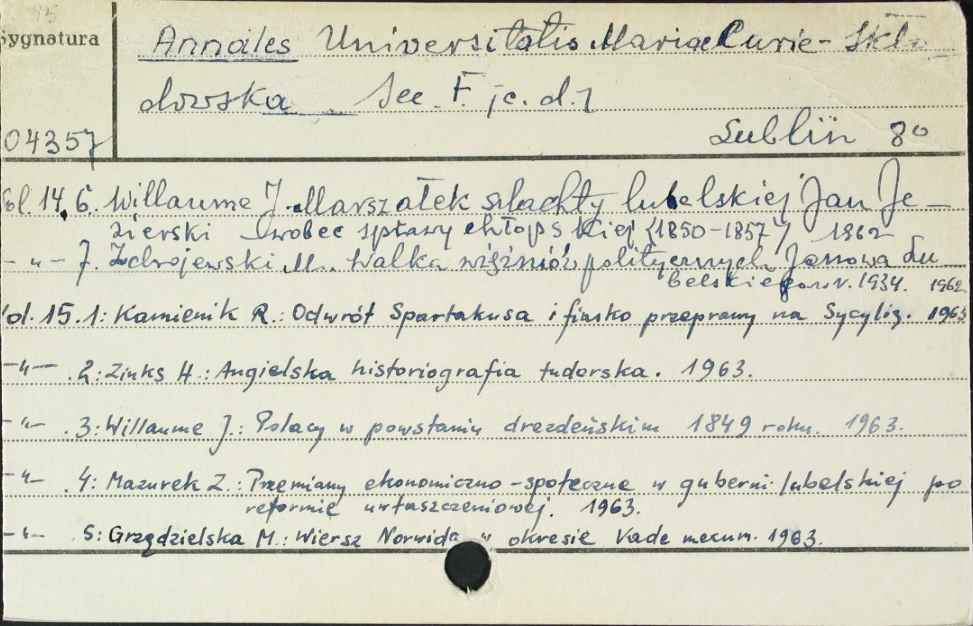 Sygnatura
Annales Universitatis Mariae Curie-Skło
dowska Sec. F. jc. d. 1
04357
Lublin 8°
Vol. 14. 6. Willaume J. Marszałek szlachty lubelskiej Jan Je-
zierski wobec sprawy chłopskiej (1850-1857) 1962
-"- 7. Zdrojewski M. Walka więźniów politycznych Janowa Lu
belskiego w r. 1934. 1962
Vol. 15. 1: Kamienik R.: Odwrót Spartakusa i fiasko przeprawy na Sycylię. 1963
-"- . 2: Zinks H.: Angielska historiografia tudorska. 1963.
-"- . 3: Willaume J.: Polacy w powstaniu drezdeńskim 1849 roku. 1963.
-"- . 4: Mazurek Z.: Przemiany ekonomiczno-społeczne w guberni lubelskiej po
reformie uwłaszczeniowej. 1963.
-"- 5: Grządzielska M.: Wiersz Norwida w okresie Vade mecum. 1963.